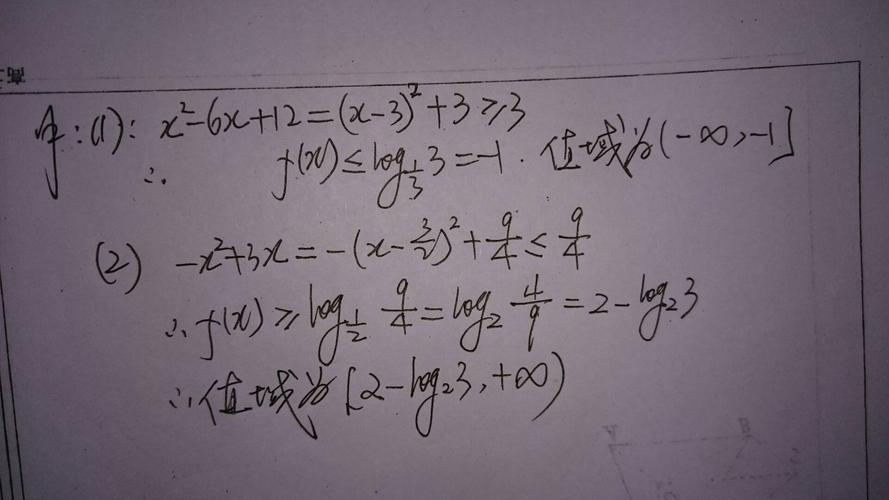 解:(1): x²-6x+12=(x-3)²+3≥3
∴ f(x)≤log_{1/3}3=-1. 值域为(-∞,-1]
(2) -x²+3x=-(x-3/2)²+9/4≤9/4
∴f(x)≥log_{1/2} 9/4=log₂ 4/9=2-log₂3
∴值域为[2-log₂3,+∞)